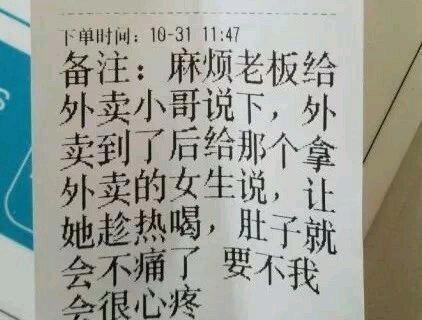 下单时间：10-31 11:47
备注：麻烦老板给
外卖小哥说下，外
卖到了后给那个拿
外卖的女生说，让
她趁热喝，肚子就
会不痛了 要不我
会很心疼